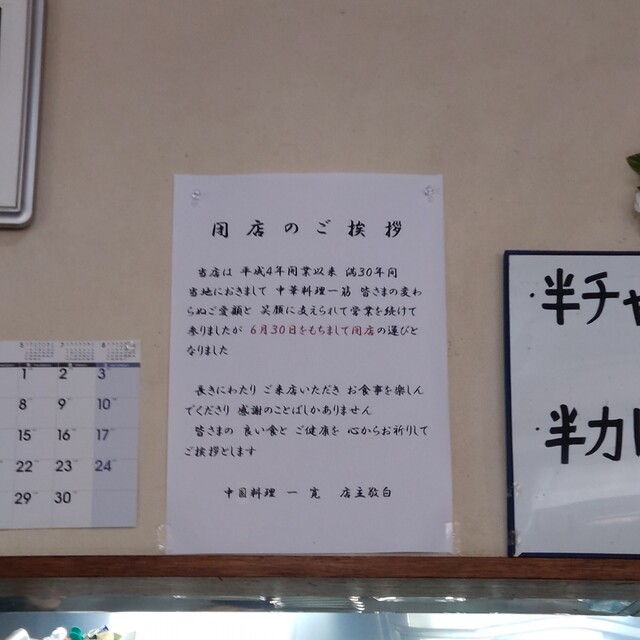 閉店のご挨拶
当店は 平成4年開業以来 満30年間
当地におきまして 中華料理一筋 皆さまの変わ
らぬご愛顧と 笑顔に支えられて営業を続けて
参りましたが 6月30日をもちまして閉店の運びと
なりました
長きにわたり ご来店いただき お食事を楽しん
でくださり 感謝のことばしかありません
皆さまの 良い食と ご健康を 心からお祈りして
ご挨拶とします
中国料理 一寛 店主敬白
1 2 3
8 9 10
15 16 17
22 23 24
29 30
・半チャ
・半カレ